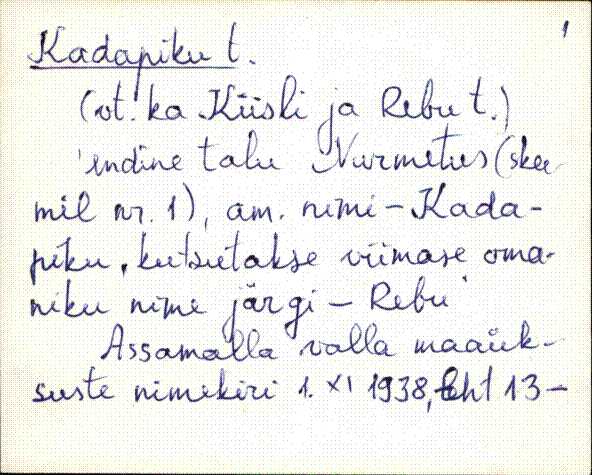 1
Kadapiku t.
(vt. ka Kiiski ja Rebu t.)
'endine talu Nurmetus (skee-
mil nr. 1), am. nimi – Kada-
piku, kutsutakse viimase oma-
niku nime järgi – Rebu'
Assamalla valla maaük-
suste nimekiri 1. XI 1938, leht 13 –